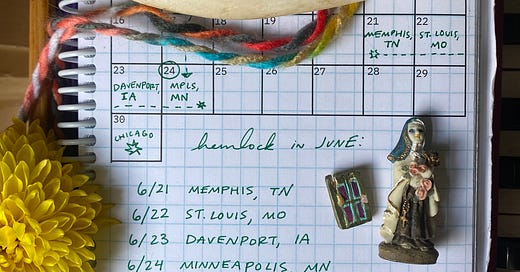 16
21 22
MEMPHIS, TN ST. LOUIS, MO
23 24 25 26 27 28 29
DAVENPORT, IA MPLS, MN
30
CHICAGO
hemlock in JUNE:
6/21 MEMPHIS, TN
6/22 ST. LOUIS, MO
6/23 DAVENPORT, IA
6/24 MINNEAPOLIS MN